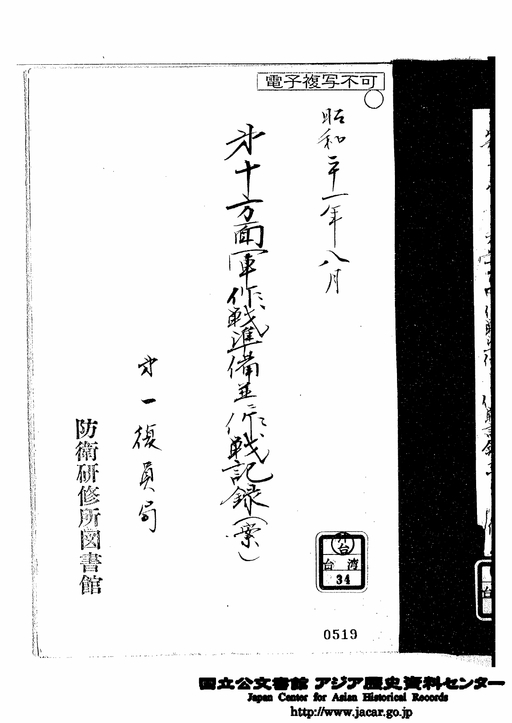 電子複写不可
昭和二十一年八月
第十方面軍作戦準備並ニ作戦記録(案)
第一復員局
防衛研修所図書館
台
台湾
34
0519
国立公文書館 アジア歴史資料センター
Japan Center for Asian Historical Records
http://www.jacar.go.jp